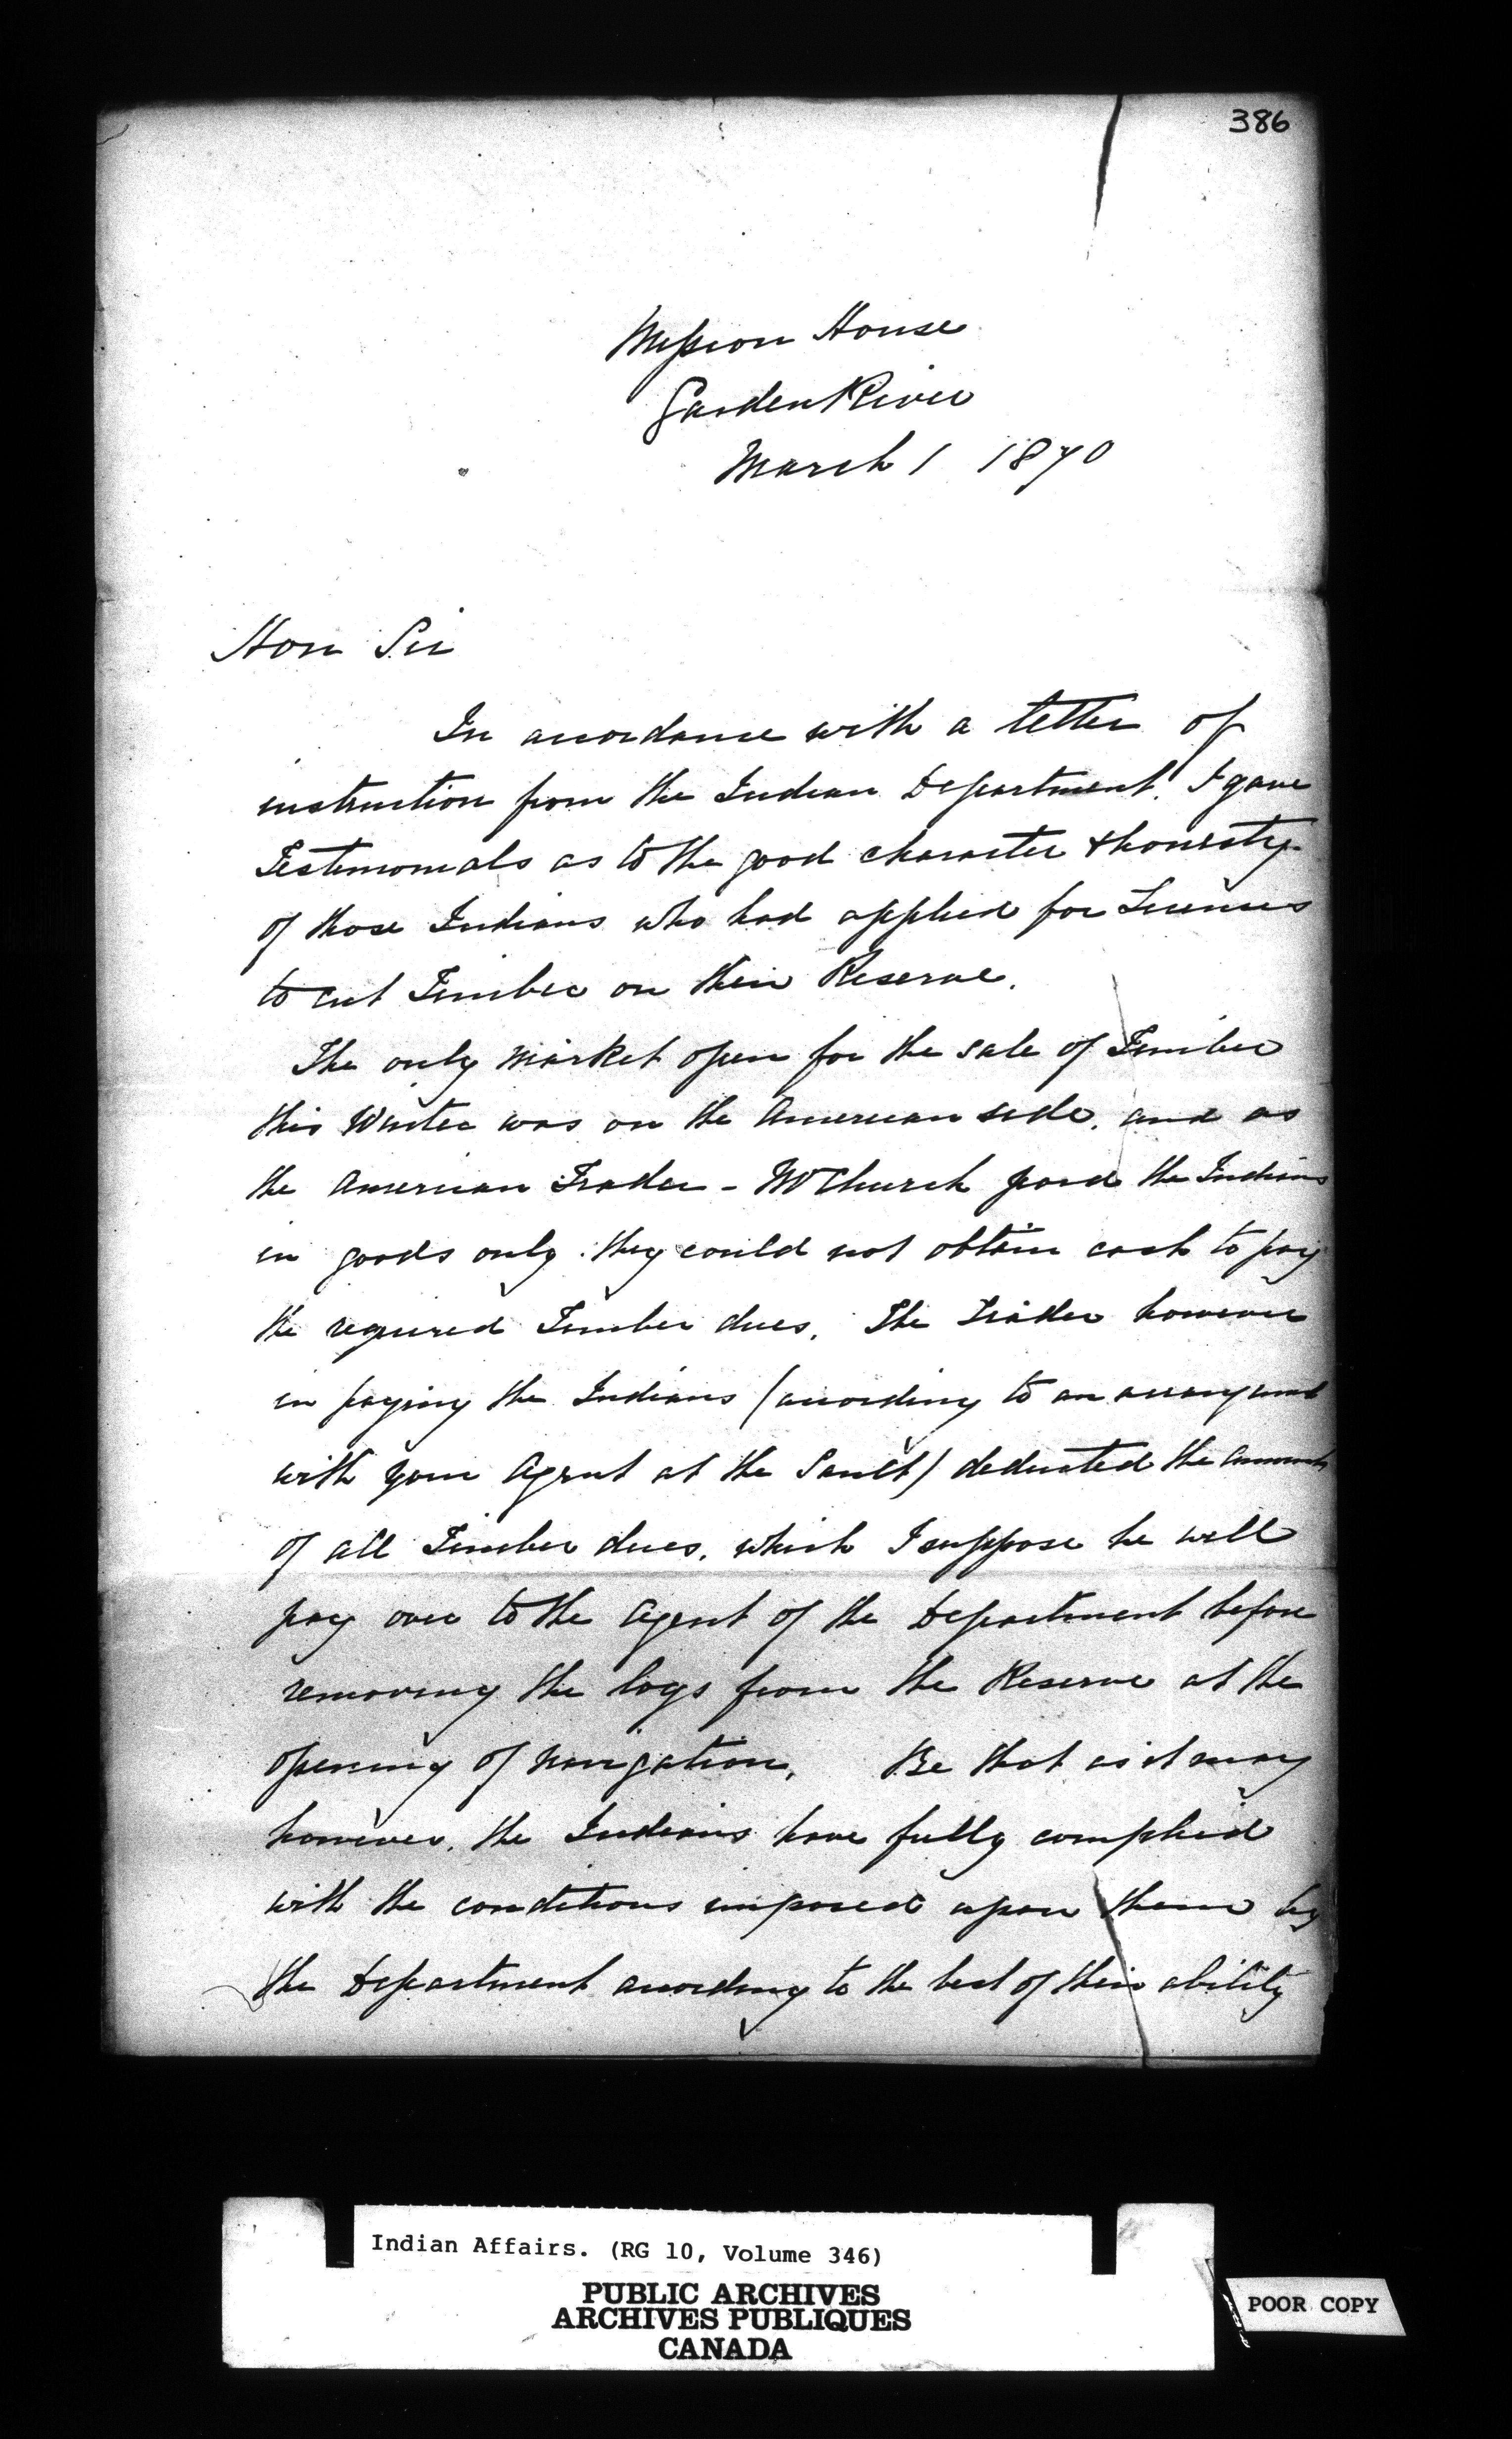 386
Mission House
Garden River
March 1 1870
Hon Sir
In accordance with a letter of
instruction from the Indian Department. I gave
Testimonials as to the good character & honesty
of those Indians who had applied for Licenses
to cut Timber on their Reserve.
The only market open for the sale of Timber
this Winter was on the American side, and as
the American Trader - Mr Church paid the Indians
in goods only. they could not obtain cash to pay
the required Timber dues. The Trader however
in paying the Indians (according to an arrangement
with your Agent at the Sault) deducted the amount
of all Timber dues, which I suppose he will
pay over to the Agent of the Department before
removing the logs from the Reserve at the
opening of navigation. Be that as it may
however, the Indians have fully complied
with the conditions imposed upon them by
the Department according to the best of their ability
Indian Affairs. (RG 10, Volume 346)
PUBLIC ARCHIVES
ARCHIVES PUBLIQUES
CANADA
POOR COPY